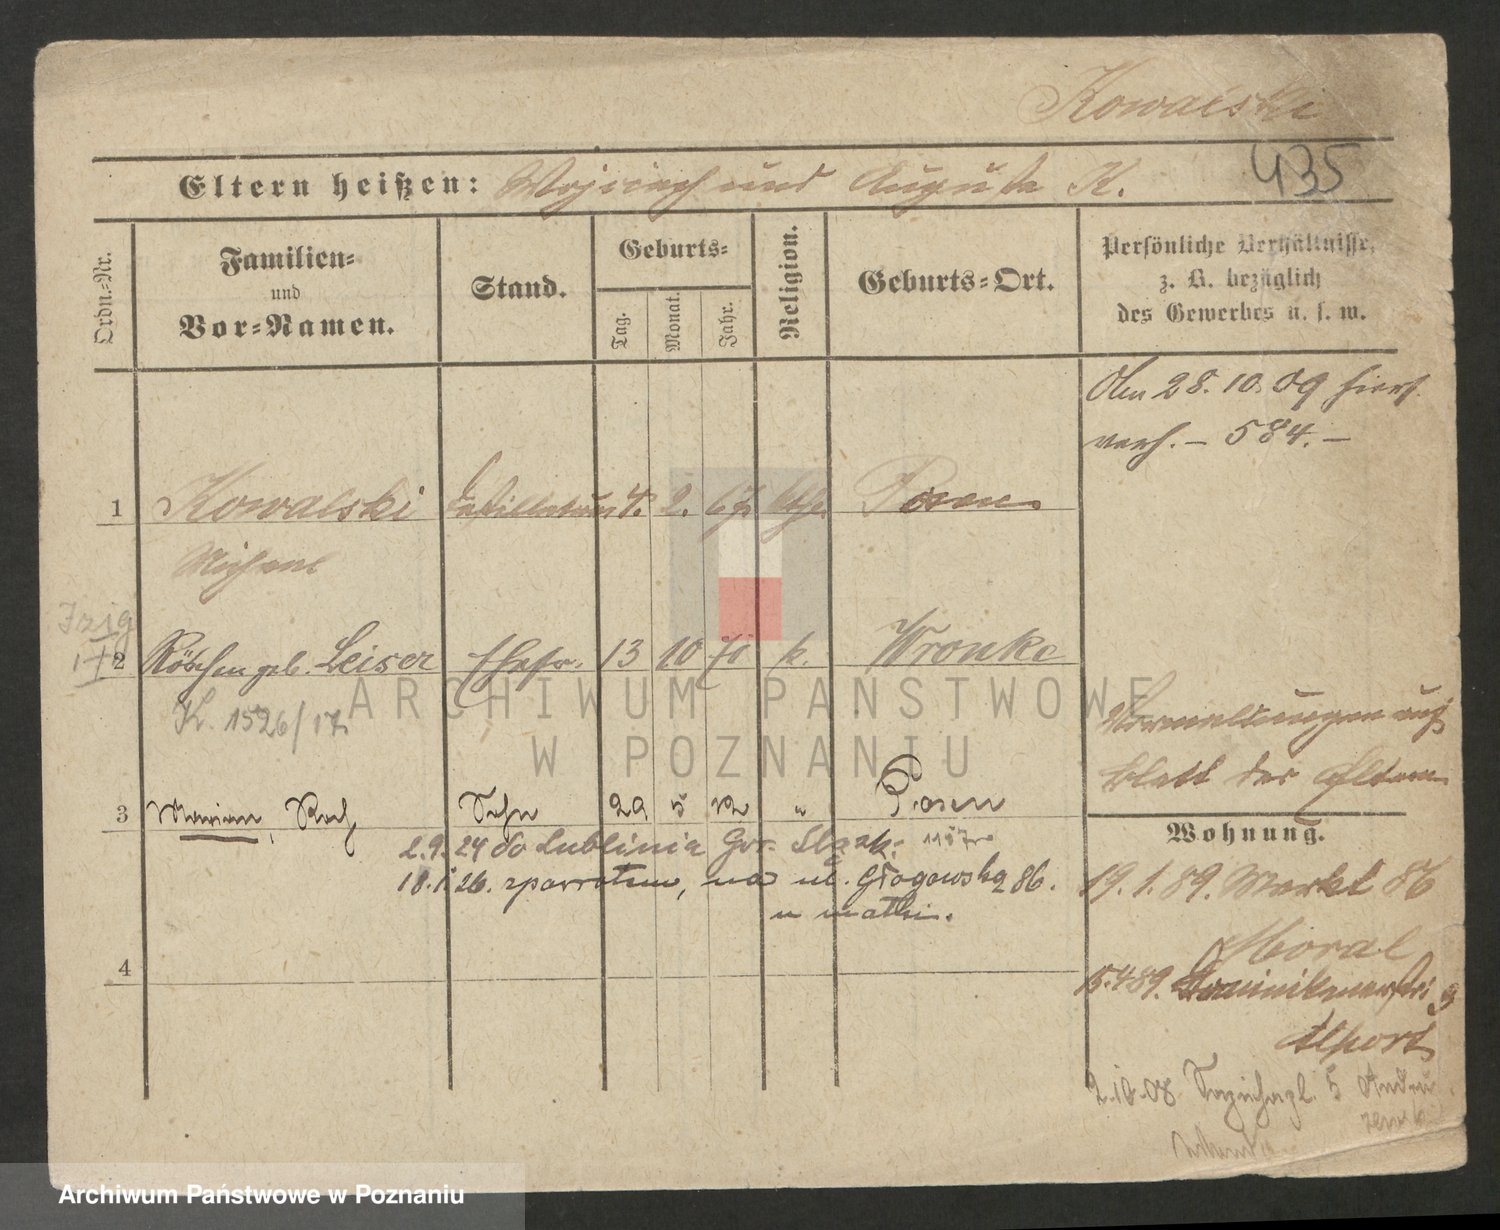 Kowalski
435
Eltern heißen: Wojciech und Auguste K.
Ordn.-Nr.
Familien-
und
Vor-Namen.
Stand.
Geburts-
Tag.
Monat.
Jahr.
Religion.
Geburts-Ort.
Persönliche Verhältnisse,
z. B. bezüglich
des Gewerbes u. s. w.
Am 28.10.09 hiers.
verh. – 584. –
1 Kowalski 4. 2. 67 kth. Posen
Michael
2 Röschen geb. Leiser Ehefr. 13 10 70 k. Wronke
K. 1526/17
Vermeldungen auf
Blatt der Eltern
3 Marian, Roch Sohn 29 5 12 " Posen
2.9.24 do Lublinia Gór. Śląsk.
18.1.26. zpowrotem, na ul. Głogowską 86.
u matki.
4
Wohnung.
19.1.89. Markt 86
Moral
15.4.89. Dominikanerstr. 3
Alport
2.10.08 5
ARCHIWUM PAŃSTWOWE
W POZNANIU
Archiwum Państwowe w Poznaniu